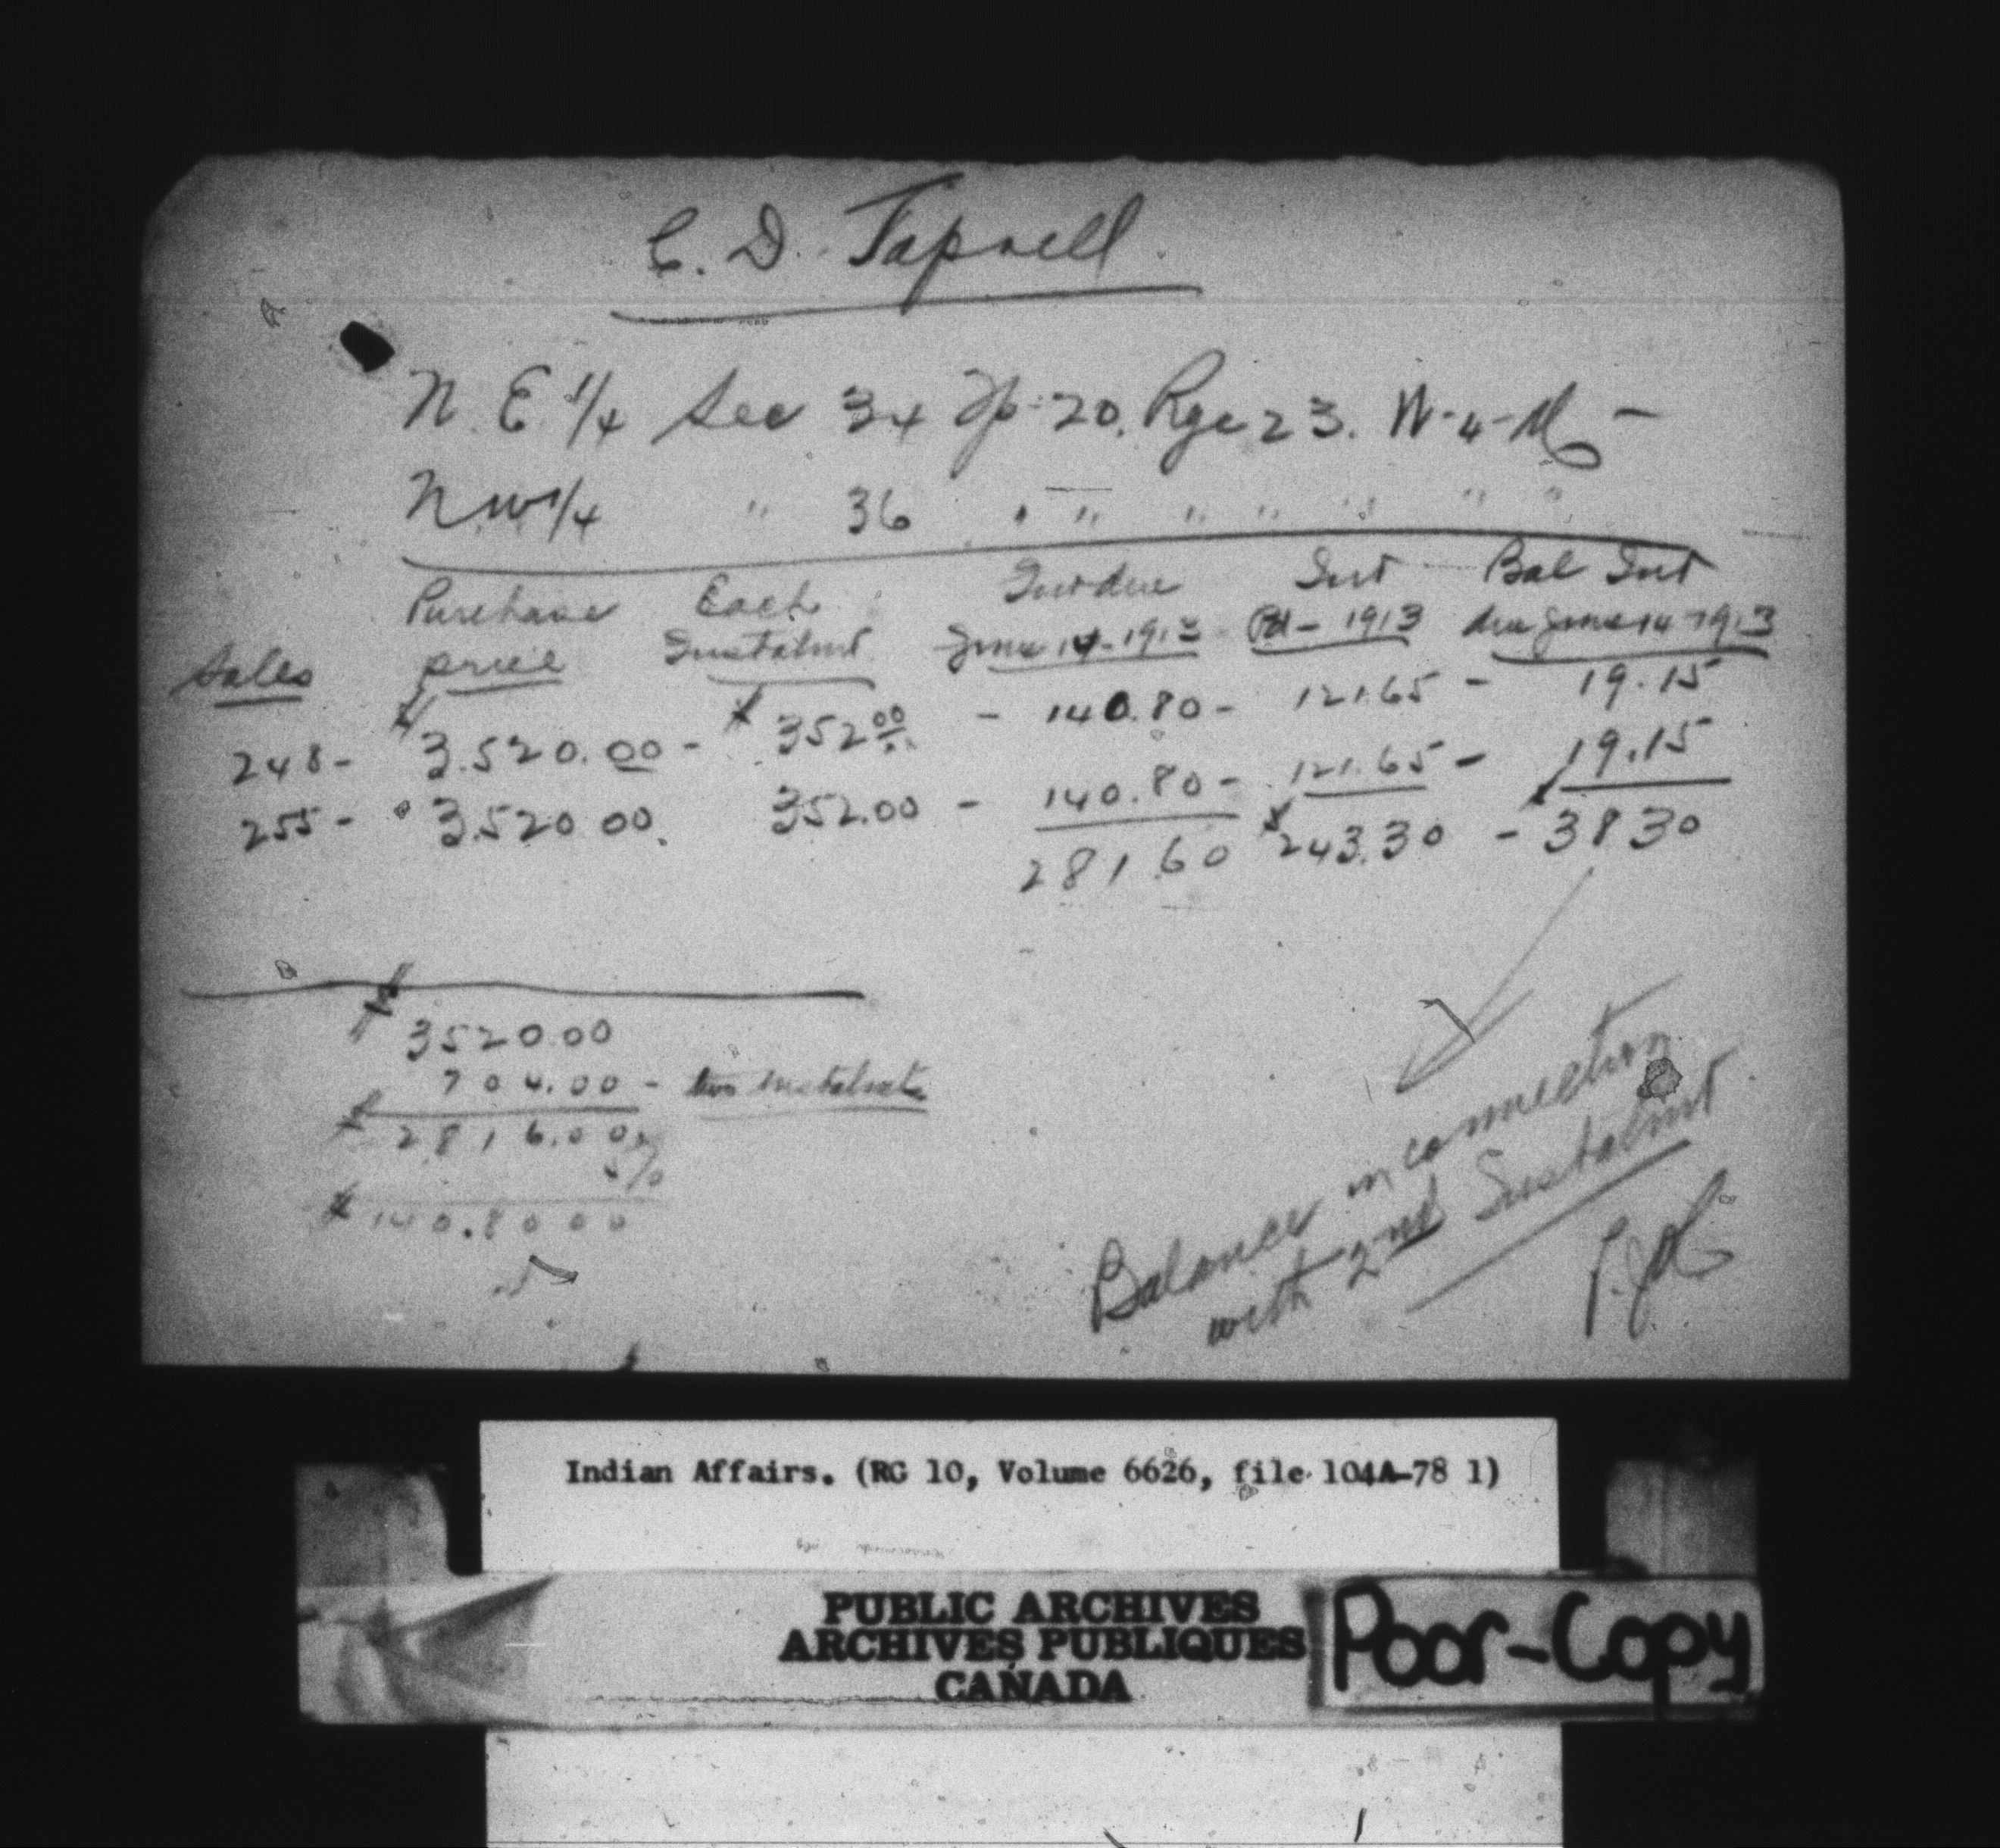 C. D. Tapnell
N. E. 1/4 Sec 34 Tp. 20. Rge 23. W-4-M -
N W 1/4 " 36 " " " " " " "
Purchase Each Int due Int Bal Int
Sales price Instalmt June 14-1913 Pd - 1913 due June 14-1913
248 - $3.520.00 - $352.00 - 140.80 - 121.65 - 19.15
255 - " 3.520 00. 352.00 - 140.80 - 121.65 - 19.15
281.60 $243.30 - $38 30
$3520.00
704.00 - two instalmts
$2816.00
5%
$140.8000
Balance in connection
with 2nd Instalmt
Indian Affairs. (RG 10, Volume 6626, file 104A-78 1)
PUBLIC ARCHIVES
ARCHIVES PUBLIQUES
CANADA
Poor-Copy